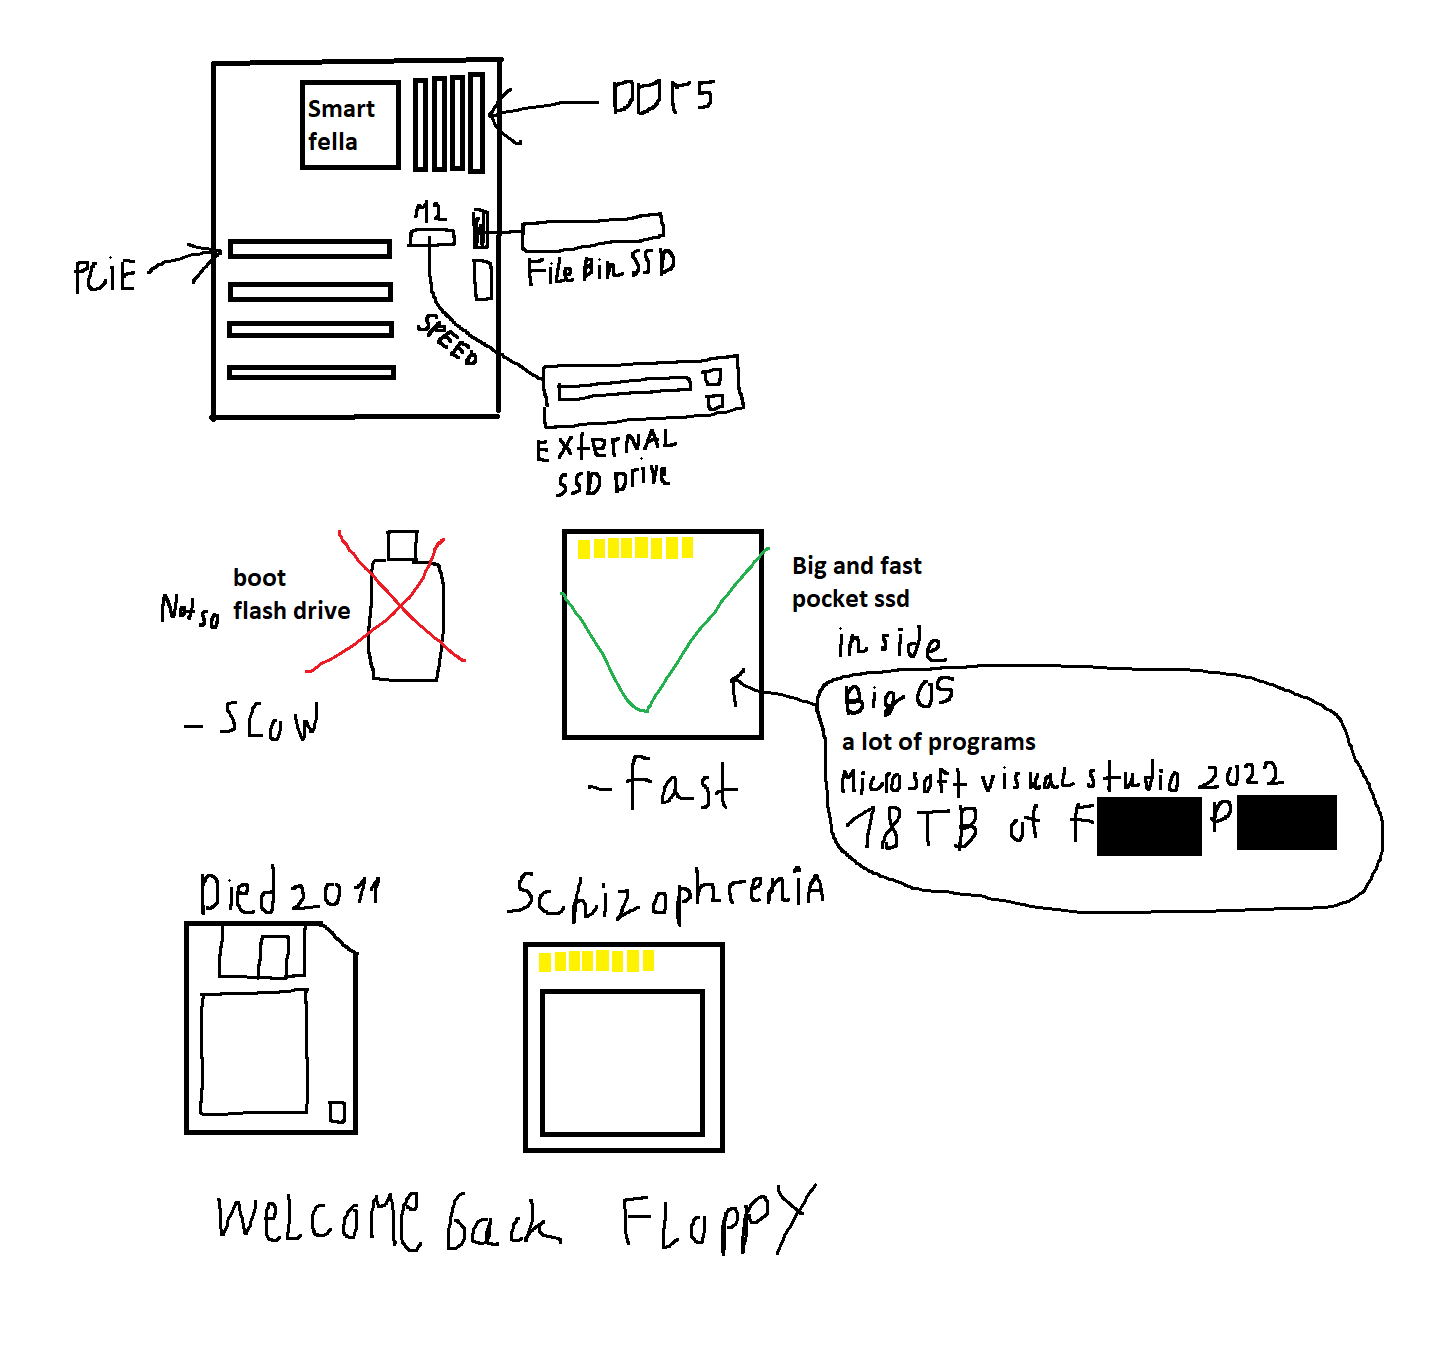 Smart
fella
DDr5
M2
PCiE
File Bin SSD
SPEED
EXterNAL
SSD Drive
boot
Not so flash drive
- SLOW
Big and fast
pocket ssd
inside
Big OS
a lot of programs
Microsoft visual studio 2022
18 TB of F P
- Fast
Died 2011
SchizophreniA
WeLcoMe back FLoppY